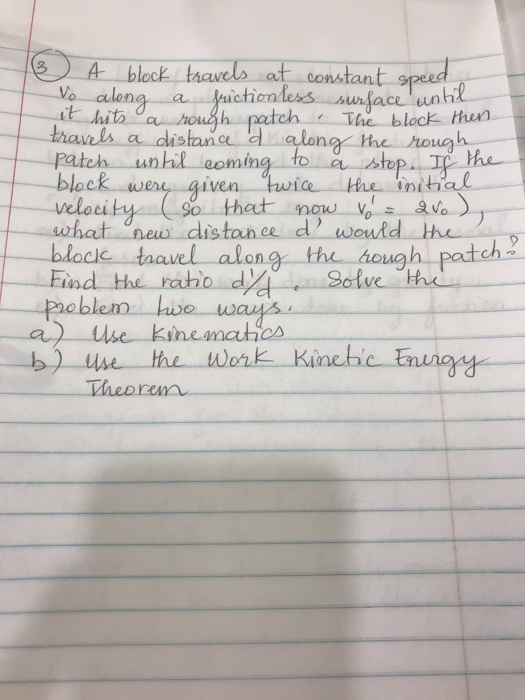 (3) A block travels at constant speed
v₀ along a frictionless surface until
it hits a rough patch. The block then
travels a distance d along the rough
patch until coming to a stop. If the
block were given twice the initial
velocity (so that now v₀' = 2v₀),
what new distance d' would the
block travel along the rough patch?
Find the ratio d'/d. Solve the
problem two ways.
a) Use Kinematics
b) Use the Work Kinetic Energy
Theorem